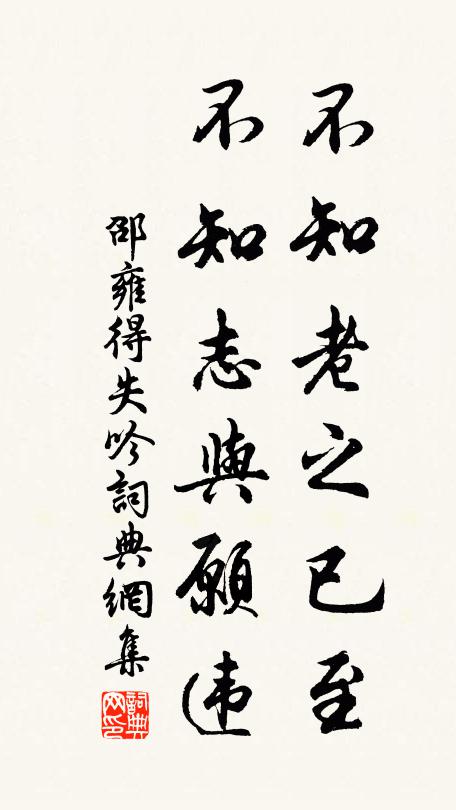 不知老之已至
不知志與願違
邵雍得失吟詞典網集
詞典網印